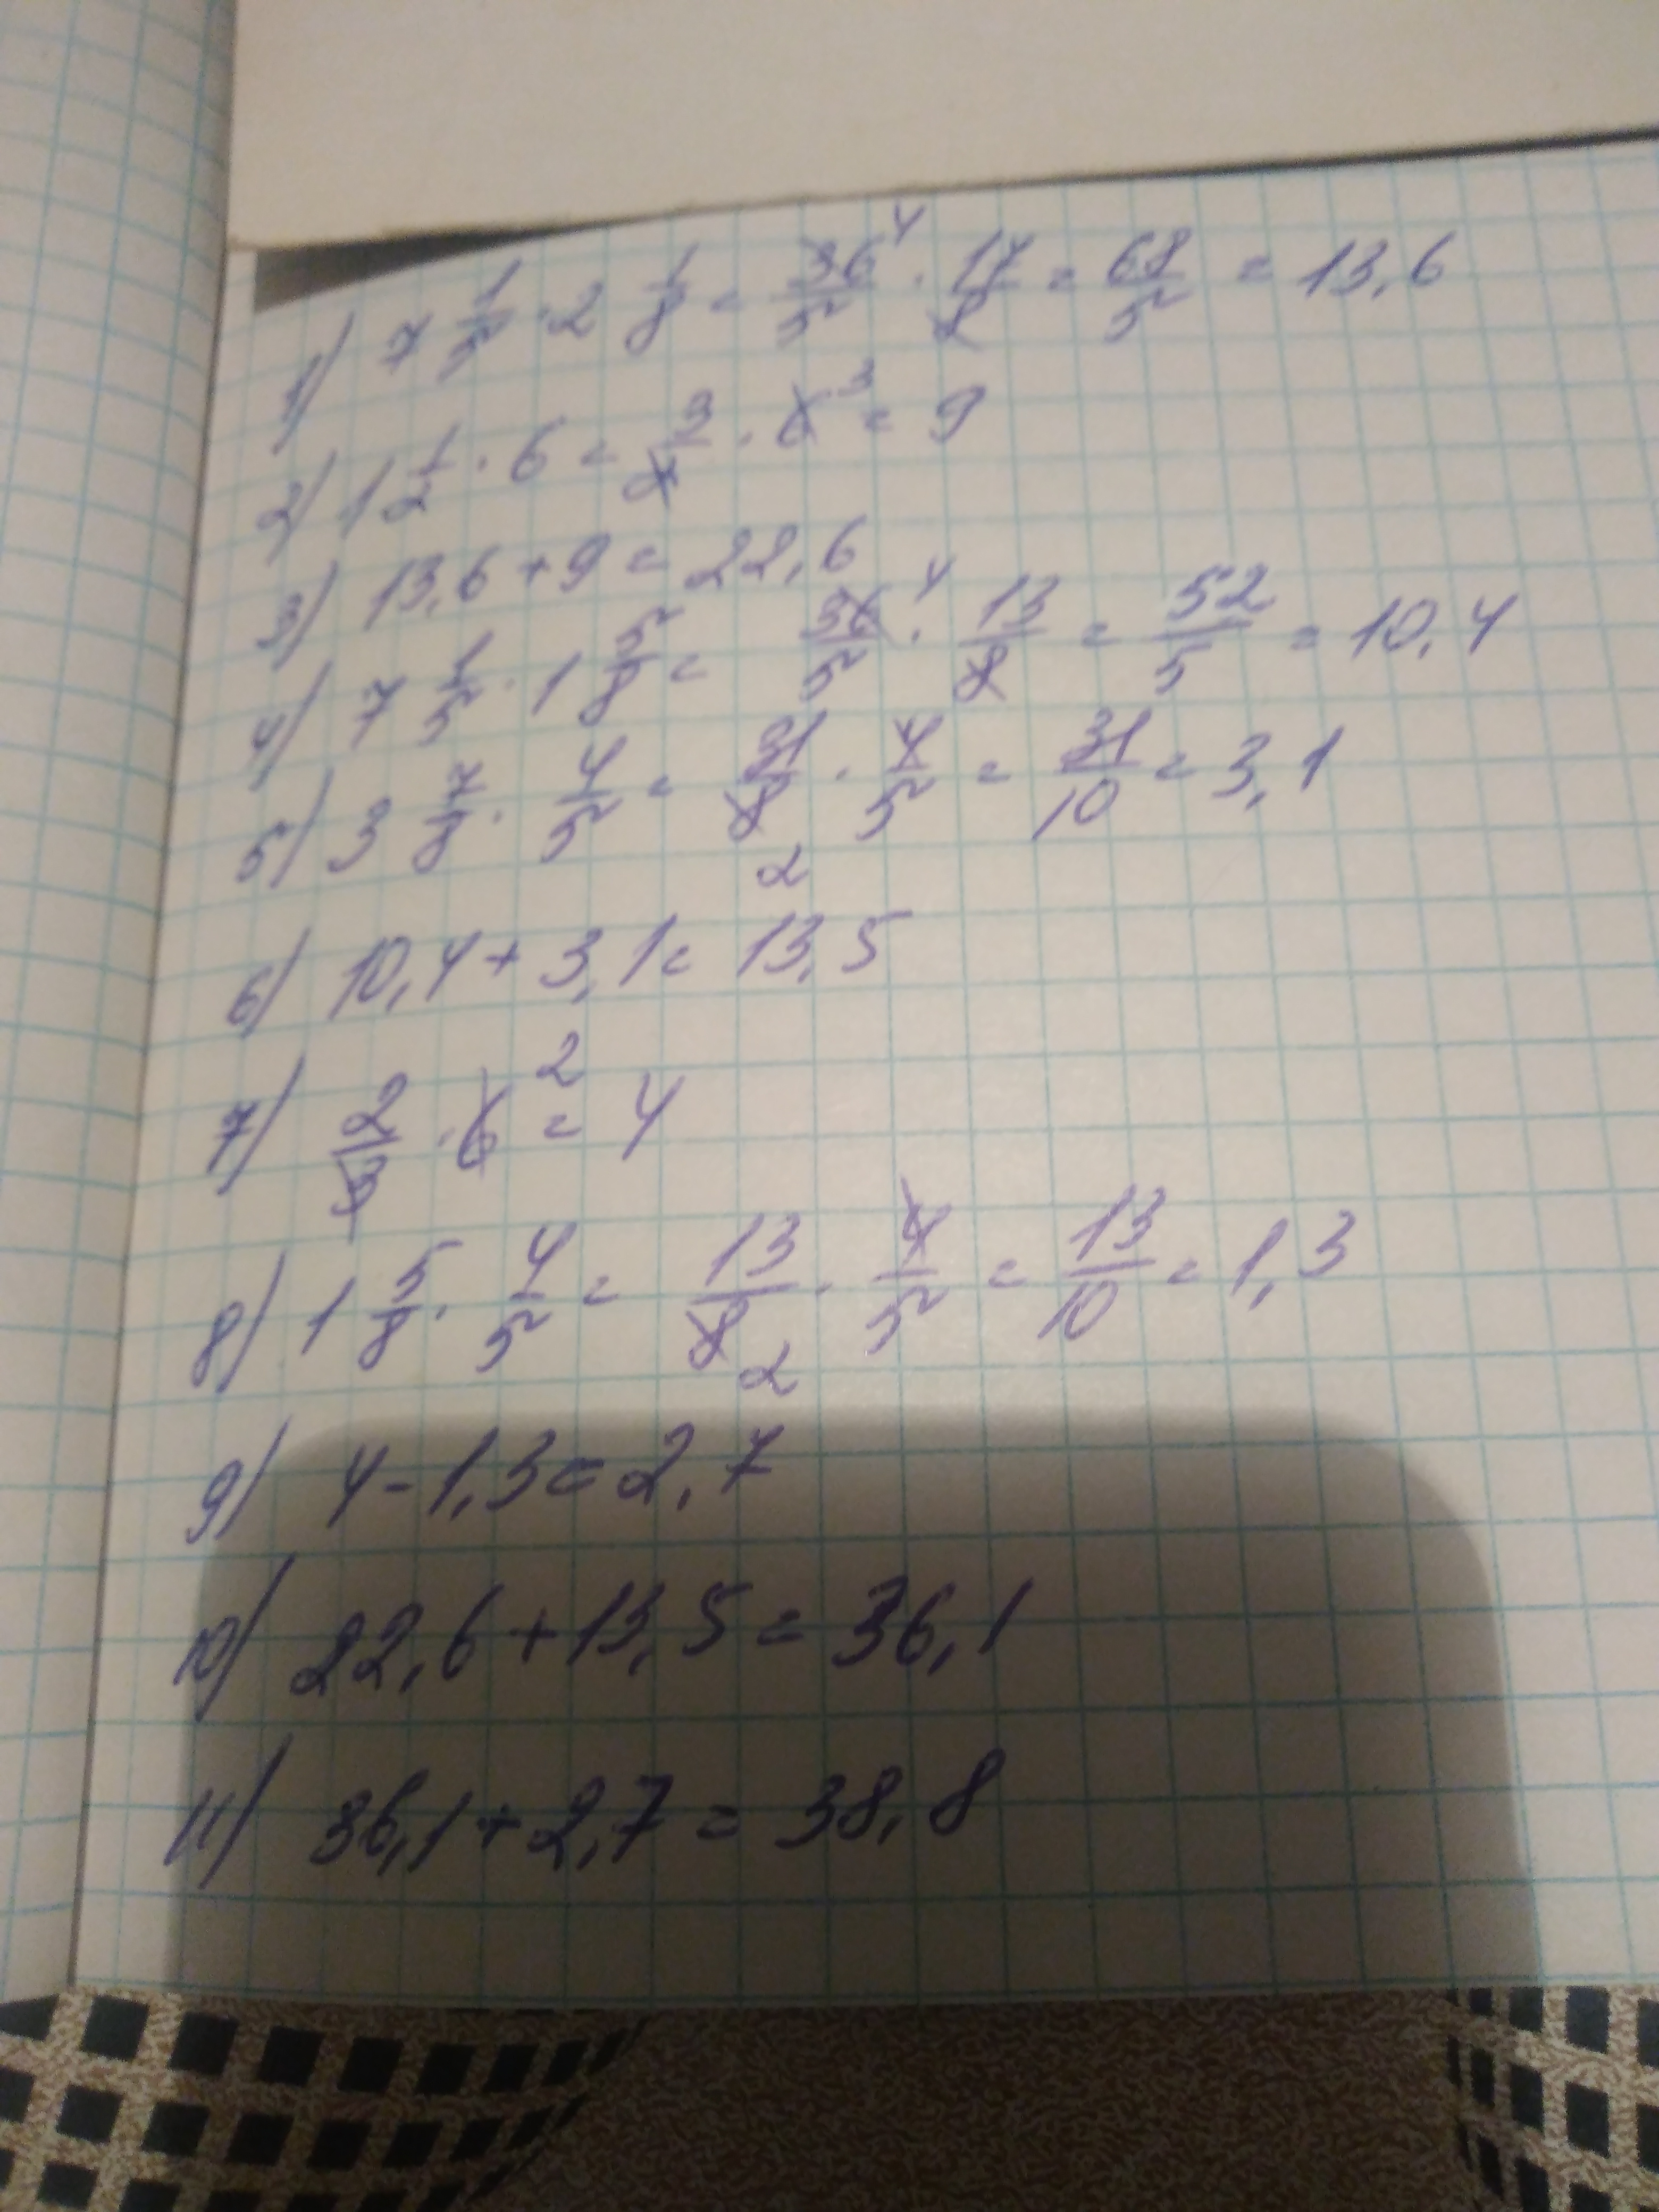 1) 7 1/5 · 2 1/8 = 36/5 4 · 17/8 = 68/5 = 13,6
2) 1 1/2 · 6 = 3/2 · 6 3 = 9
3) 13,6 + 9 = 22,6
4) 7 1/5 · 1 5/8 = 36/5 4 · 13/8 = 52/5 = 10,4
5) 3 7/8 · 4/5 = 31/8 2 · 4/5 = 31/10 = 3,1
6) 10,4 + 3,1 = 13,5
7) 2/3 · 6 2 = 4
8) 1 5/8 · 4/5 = 13/8 2 · 4/5 = 13/10 = 1,3
9) 4 - 1,3 = 2,7
10) 22,6 + 13,5 = 36,1
11) 36,1 + 2,7 = 38,8